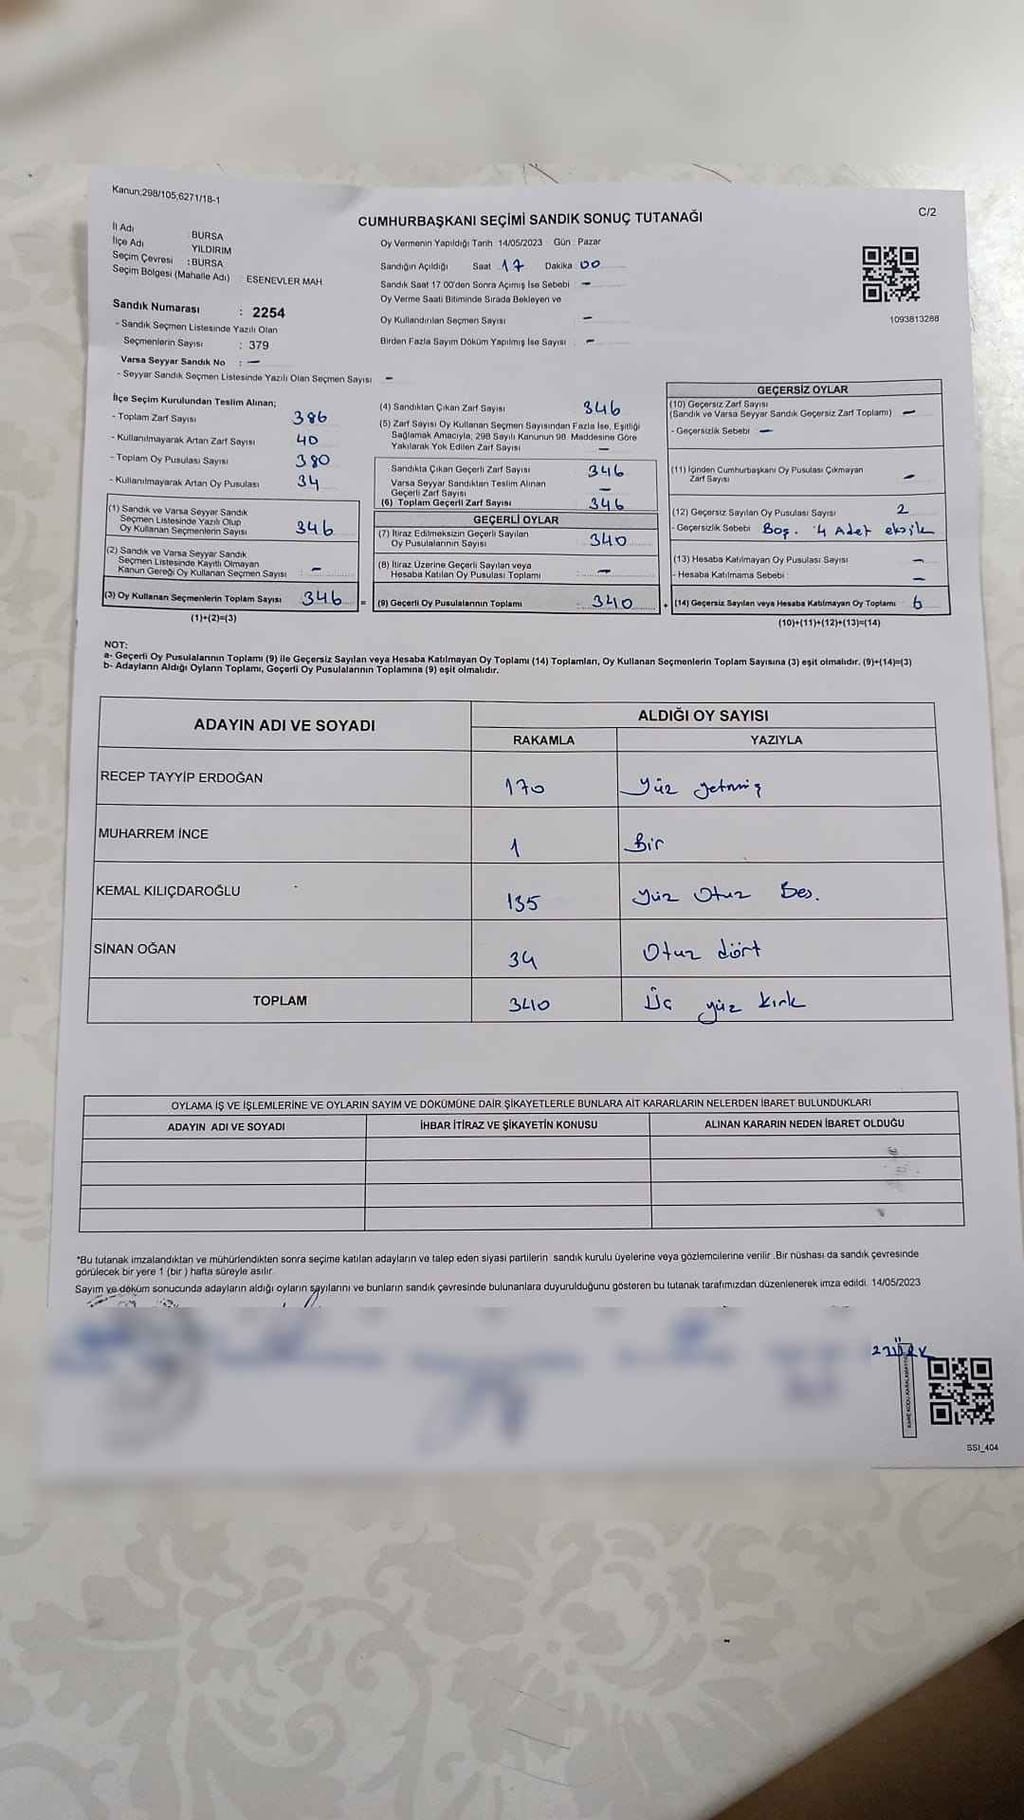 Kanun;298/105,6271/18-1
CUMHURBAŞKANI SEÇİMİ SANDIK SONUÇ TUTANAĞI
C/2
İl Adı BURSA
İlçe Adı YILDIRIM
Seçim Çevresi : BURSA
Seçim Bölgesi (Mahalle Adı) ESENEVLER MAH
Sandık Numarası : 2254
- Sandık Seçmen Listesinde Yazılı Olan
Seçmenlerin Sayısı : 379
Varsa Seyyar Sandık No : —
- Seyyar Sandık Seçmen Listesinde Yazılı Olan Seçmen Sayısı —
Oy Vermenin Yapıldığı Tarih 14/05/2023 Gün Pazar
Sandığın Açıldığı Saat 17 Dakika 00
Sandık Saat 17 00'den Sonra Açımış İse Sebebi —
Oy Verme Saati Bitiminde Sırada Bekleyen ve
Oy Kullandırılan Seçmen Sayısı —
Birden Fazla Sayım Döküm Yapılmış İse Sayısı —
1093813288
İlçe Seçim Kurulundan Teslim Alınan;
- Toplam Zarf Sayısı 386
- Kullanılmayarak Artan Zarf Sayısı 40
- Toplam Oy Pusulası Sayısı 380
- Kullanılmayarak Artan Oy Pusulası 34
(1) Sandık ve Varsa Seyyar Sandık
Seçmen Listesinde Yazılı Olup
Oy Kullanan Seçmenlerin Sayısı 346
(2) Sandık ve Varsa Seyyar Sandık
Seçmen Listesinde Kayıtlı Olmayan
Kanun Gereği Oy Kullanan Seçmen Sayısı —
(3) Oy Kullanan Seçmenlerin Toplam Sayısı 346
(1)+(2)=(3)
(4) Sandıktan Çıkan Zarf Sayısı 346
(5) Zarf Sayısı Oy Kullanan Seçmen Sayısından Fazla İse, Eşitliği
Sağlamak Amacıyla, 298 Sayılı Kanunun 98. Maddesine Göre
Yakılarak Yok Edilen Zarf Sayısı —
Sandıkta Çıkan Geçerli Zarf Sayısı 346
Varsa Seyyar Sandıktan Teslim Alınan
Geçerli Zarf Sayısı —
(6) Toplam Geçerli Zarf Sayısı 346
GEÇERLİ OYLAR
(7) İtiraz Edilmeksizin Geçerli Sayılan
Oy Pusulalarının Sayısı 340
(8) İtiraz Üzerine Geçerli Sayılan veya
Hesaba Katılan Oy Pusulası Toplamı —
= (9) Geçerli Oy Pusulalarının Toplamı 340
GEÇERSİZ OYLAR
(10) Geçersiz Zarf Sayısı
(Sandık ve Varsa Seyyar Sandık Geçersiz Zarf Toplamı) —
- Geçersizlik Sebebi —
(11) İçinden Cumhurbaşkanı Oy Pusulası Çıkmayan
Zarf Sayısı —
(12) Geçersiz Sayılan Oy Pusulası Sayısı 2
- Geçersizlik Sebebi Boş. 4 Adet eksik
(13) Hesaba Katılmayan Oy Pusulası Sayısı —
- Hesaba Katılmama Sebebi —
+ (14) Geçersiz Sayılan veya Hesaba Katılmayan Oy Toplamı 6
(10)+(11)+(12)+(13)=(14)
NOT:
a- Geçerli Oy Pusulalarının Toplamı (9) ile Geçersiz Sayılan veya Hesaba Katılmayan Oy Toplamı (14) Toplamları, Oy Kullanan Seçmenlerin Toplam Sayısına (3) eşit olmalıdır. (9)+(14)=(3)
b- Adayların Aldığı Oyların Toplamı, Geçerli Oy Pusulalarının Toplamına (9) eşit olmalıdır.
ADAYIN ADI VE SOYADI ALDIĞI OY SAYISI
RAKAMLA YAZIYLA
RECEP TAYYİP ERDOĞAN 170 Yüz yetmiş
MUHARREM İNCE 1 Bir
KEMAL KILIÇDAROĞLU 135 Yüz Otuz Beş.
SİNAN OĞAN 34 Otuz dört
TOPLAM 340 Üç yüz kırk
OYLAMA İŞ VE İŞLEMLERİNE VE OYLARIN SAYIM VE DÖKÜMÜNE DAİR ŞİKAYETLERLE BUNLARA AİT KARARLARIN NELERDEN İBARET BULUNDUKLARI
ADAYIN ADI VE SOYADI İHBAR İTİRAZ VE ŞİKAYETİN KONUSU ALINAN KARARIN NEDEN İBARET OLDUĞU
*Bu tutanak imzalandıktan ve mühürlendikten sonra seçime katılan adayların ve talep eden siyasi partilerin sandık kurulu üyelerine veya gözlemcilerine verilir .Bir nüshası da sandık çevresinde
görülecek bir yere 1 (bir ) hafta süreyle asılır.
Sayım ve döküm sonucunda adayların aldığı oyların sayılarını ve bunların sandık çevresinde bulunanlara duyurulduğunu gösteren bu tutanak tarafımızdan düzenlenerek imza edildi. 14/05/2023
SSI_404